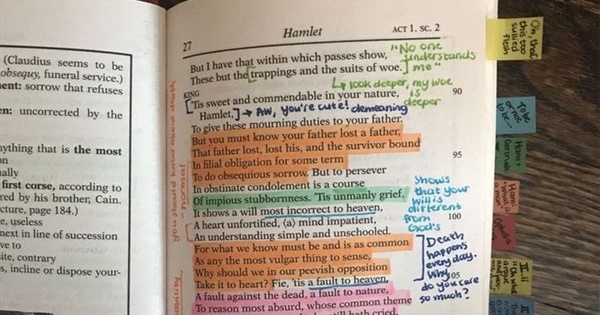 (Claudius seems to be
obsequy, funeral service.)
ment: sorrow that refuses
en: uncorrected by the
nything that is the most
first corse, according to
red by his brother, Cain.
cture, page 184.)
e, useless
next in line of succession
ve to
site, contrary
s, incline or dispose your-
27 Hamlet ACT 1. SC. 2
But I have that within which passes show,
These but the trappings and the suits of woe.
"No one understands me"
↳ look deeper, my woe is deeper
KING
'Tis sweet and commendable in your nature, 90
Hamlet,
→ Aw, you're cute! demeaning
To give these mourning duties to your father.
But you must know your father lost a father,
That father lost, lost his, and the survivor bound
In filial obligation for some term 95
To do obsequious sorrow. But to persever
In obstinate condolement is a course
Of impious stubbornness. 'Tis unmanly grief.
It shows a will most incorrect to heaven,
A heart unfortified, (a) mind impatient, 100
An understanding simple and unschooled.
For what we know must be and is as common
As any the most vulgar thing to sense,
Why should we in our peevish opposition
Take it to heart? Fie, 'tis a fault to heaven, 105
A fault against the dead, a fault to nature,
To reason most absurd, whose common theme
shows that your will is different from God's
Death happens everyday. Why do you care so much?
you should know about death
normal
Oh, that this too sullied flesh
To be or not to be...